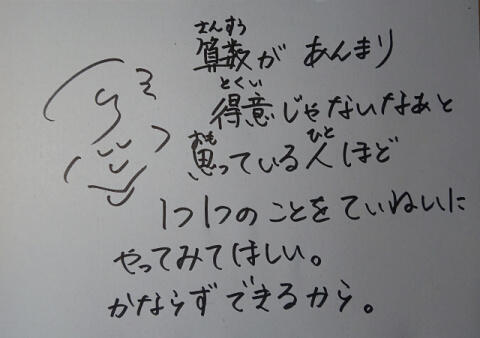 さんすう
算数が あんまり
とくい
得意じゃないなぁと
おも ひと
思っている人ほど
1つ1つのことをていねいに
やってみてほしい。
かならずできるから。